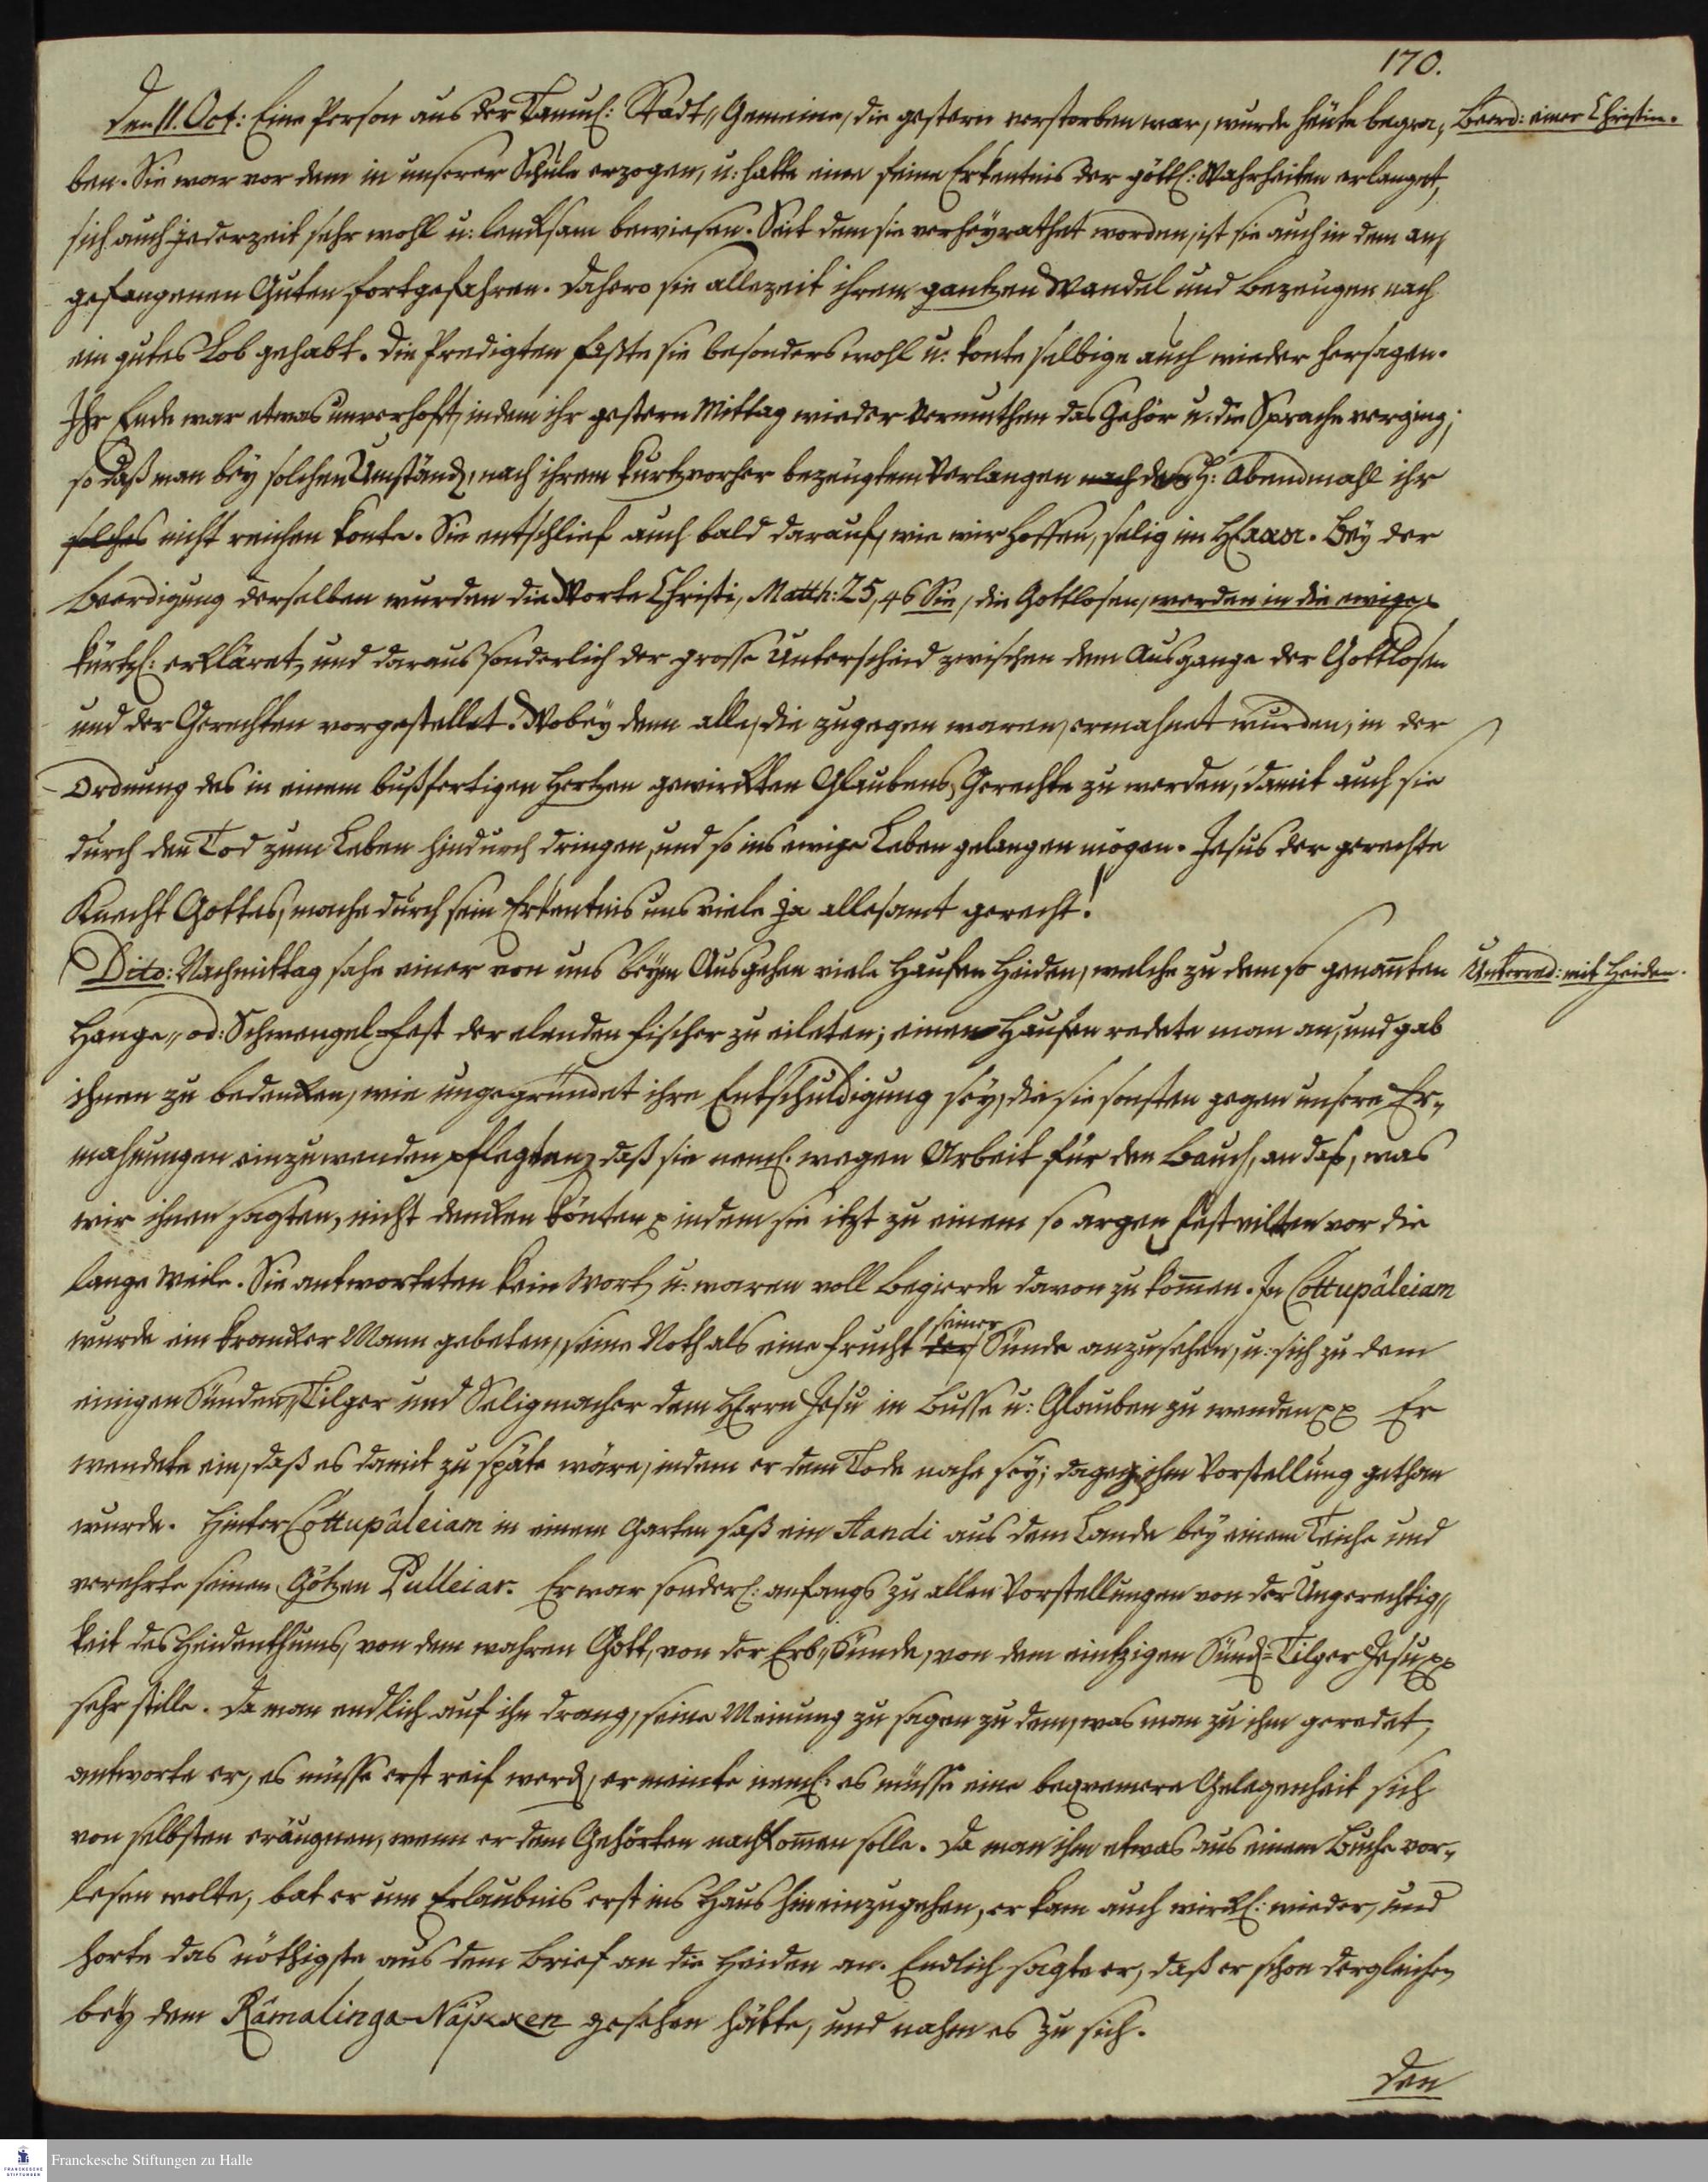 170.
Den 11. Oct: Eine Person aus der Tamul: Stadt-Gemeine, die gestern verstorben war, wurde heute begra-
Beerd: einer Christin.
ben. Sie war vor dem in unserer Schule erzogen, u: hatte eine feine Erkentnis der göttl: Wahrheiten erlanget,
sich auch jederzeit sehr wohl u: lencksam bewiesen. Seit dem sie verheyrathet worden, ist sie auch in dem an-
gefangenen Guten fortgefahren. Dahero sie allezeit ihrem gantzen Wandel und Bezeugen nach
ein gutes Lob gehabt. Die Predigten faßte sie besonders wohl u: konte selbige auch wieder hersagen.
Ihr Ende war etwas unverhoft, indem ihr gestern Mittag wieder Vermuthen das Gehör u: die Sprache verging;
so daß man bey solchen Umständ, nach ihrem kurtz vorher bezeugtem Verlangen nach des H: Abendmahl ihr
solches nicht reichen konte. Sie entschlief auch bald darauf, wie wir hoffen, selig im HErrn. Bey der
Beerdigung derselben wurden die Worte Christi, Matth: 25, 46 Sie, die Gottlosen, werden in die ewige p
kürtzl: erkläret, und daraus sonderlich der grosse Unterscheid zwischen dem Ausgange der Gottlosen
und der Gerechten vorgestellet. Wobey denn alle, die zugegen waren, ermahnet wurden, in der
Ordnung des in einem bußfertigen Hertzen gewirckten Glaubens Gerechte zu werden, damit auch sie
durch den Tod zum Leben hindurch dringen, und so ins ewige Leben gelangen mögen. Jesus der gerechte
Knecht Gottes, mache durch sein Erkentnis uns viele ja allesamt gerecht!
Dito: Nachmittag sahe einer von uns beym Ausgehen viele Haufen Heiden, welche zu dem so genañten
Unterred: mit Heiden.
Hange- od: Schwengel-Fest der elenden Fischer zu eileten; einen Haufen redete man an, und gab
ihnen zu bedencken, wie ungegründet ihre Entschuldigung sey, die sie sonsten gegen unsere Er-
mahnungen einzuwenden pflegten, daß sie neml. wegen Arbeit für den Bauch, an das, was
wir ihnen sagten, nicht dencken könten p indem sie itzt zu einem so argen Fest eilten vor die
lange Weile. Sie antworteten kein Wort, u: waren voll Begierde davon zu kom̄en. In Cottupâleiam
wurde ein krancker Mann gebeten, seine Noth als eine Frucht der seiner Sünde anzusehen, u: sich zu dem
einigen Sünden-Tilger und Seligmacher dem HErrn Jesu in Busse u: Glauben zu wenden pp Er
wendete ein, daß es damit zu späte wäre, indem er dem Tode nahe sey; dageg ihm Vorstellung gethan
wurde. Hinter Cottupâleiam in einem Garten saß ein Aandi aus dem Lande bey einem Teiche und
verehrte seinen Götzen Pulleiar. Er war sonderl: anfangs zu allen Vorstellungen von der Ungerechtig-
keit des Heidenthums, von dem wahren Gott, von der Erb-Sünde, von dem eintzigen Sünd-Tilger Jesu pp
sehr stille. Da man endlich auf ihn drang, seine Meinung zu sagen zu dem, was man zu ihm geredet,
antworte er, es müsse erst reif werd, er meinte neml: es müsse eine bequemere Gelegenheit sich
von selbsten eräugnen, wenn er dem Gehörten nachkom̄en solle. Da man ihm etwas aus einem Buche vor-
lesen wolte, bat er um Erlaubnis erst ins Haus hineinzugehen, er kam auch wirckl: wieder, und
horte das nöthigste aus dem Brief an die Heiden an. Endlich sagte er, daß er schon dergleichen
bey dem Râmalinga-Naicken gesehen hätte, und nahm es zu sich.
Den
Franckesche Stiftungen zu Halle